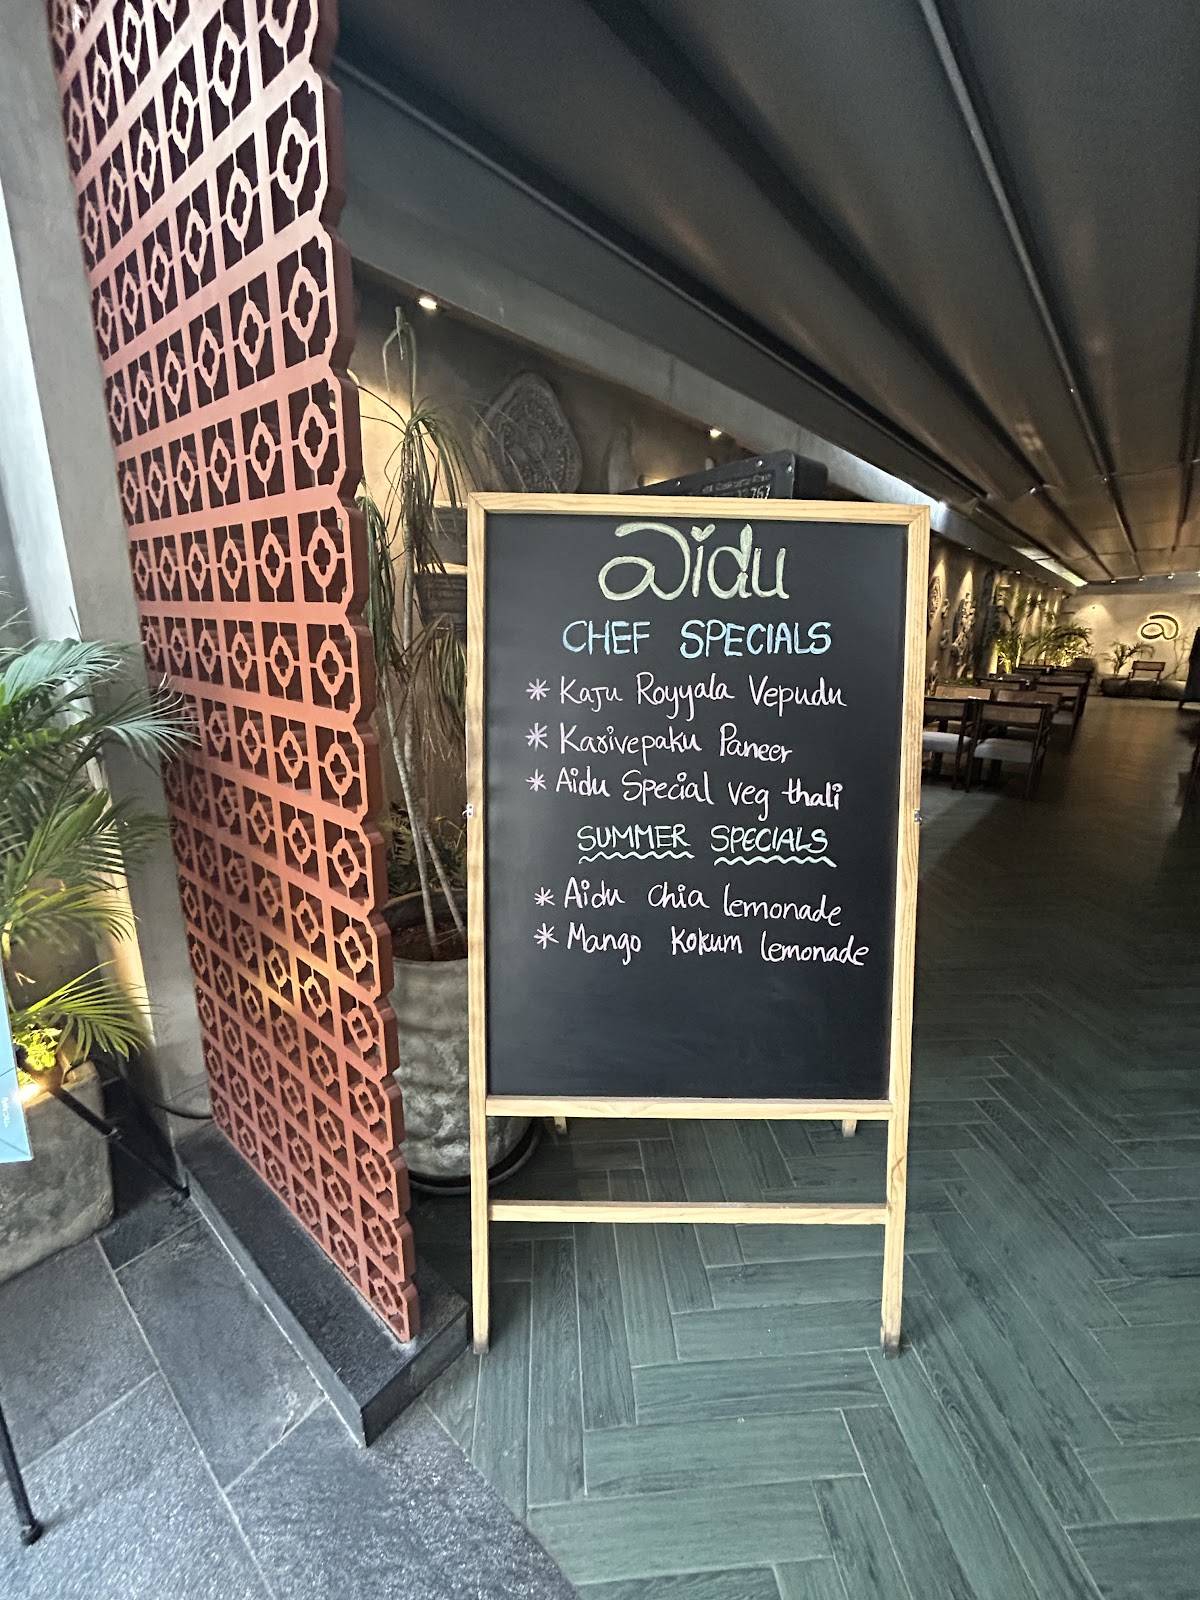 aidu
CHEF SPECIALS
* Kaju Royyala Vepudu
* Karivepaku Paneer
* Aidu Special veg thali
SUMMER SPECIALS
* Aidu Chia lemonade
* Mango Kokum lemonade